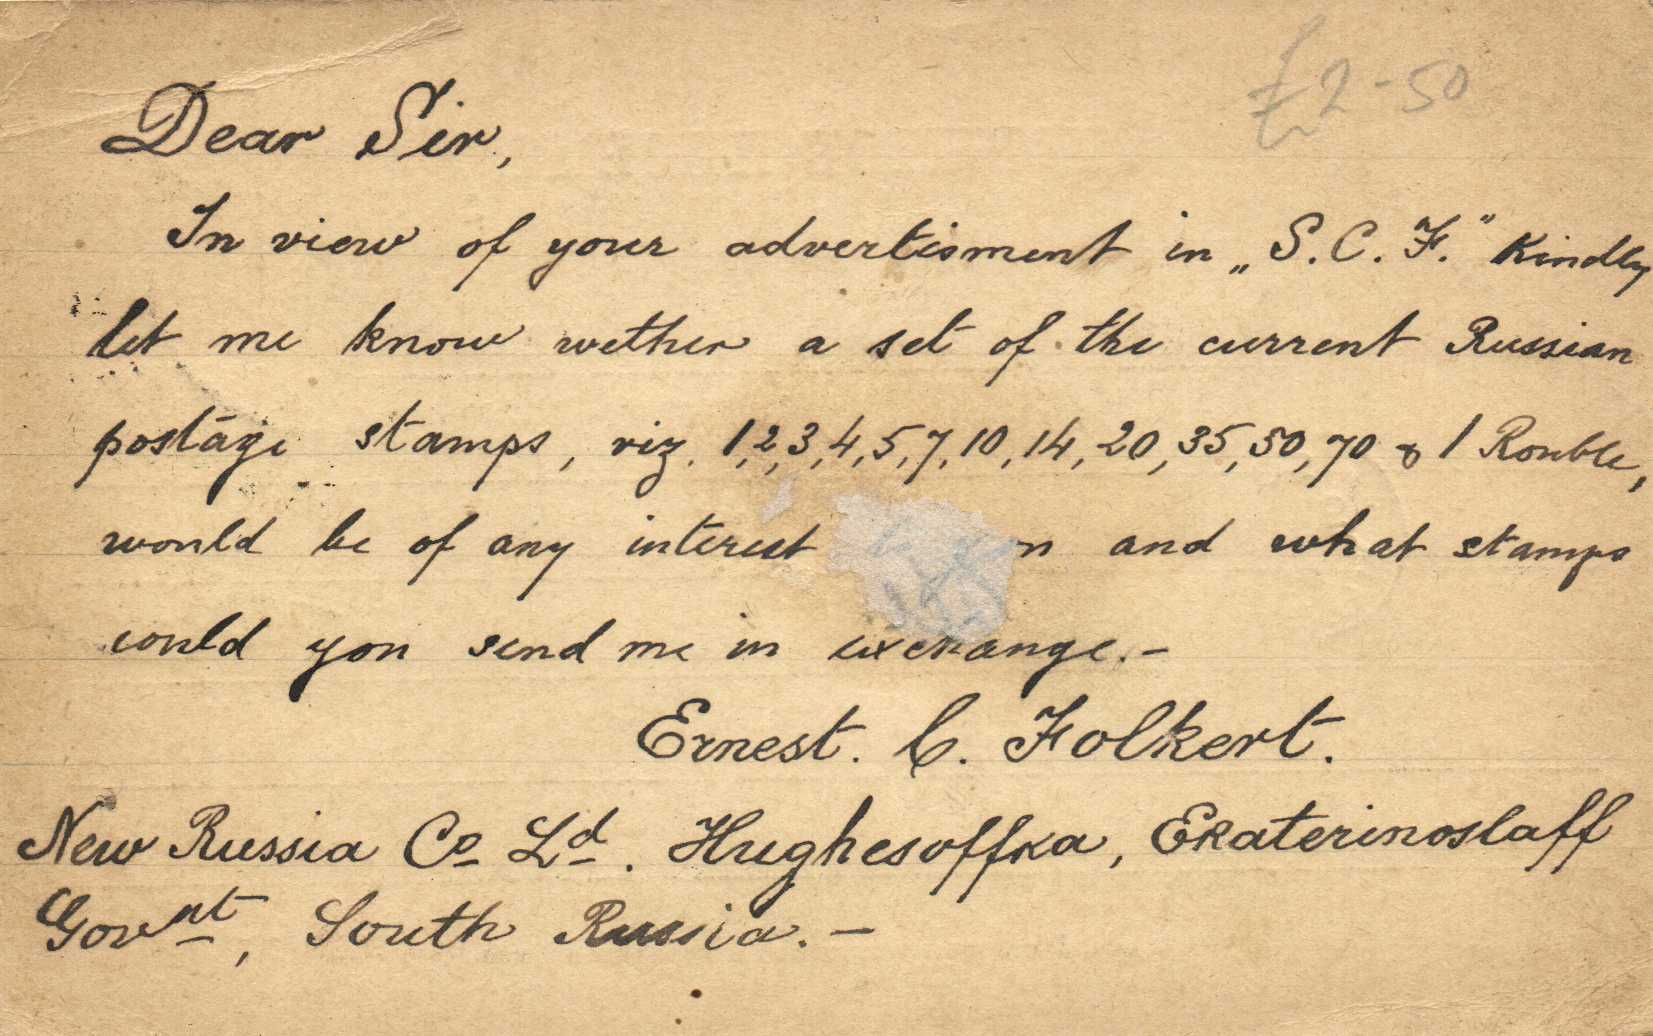 £2-50
Dear Sir,
In view of your advertisment in „S. C. F." kindly
let me know wether a set of the current Russian
postage stamps, viz. 1,2,3,4,5,7,10,14,20,35,50,70 & 1 Rouble,
would be of any interest and what stamps
could you send me in exchange.-
Ernest. C. Folkert.
New Russia Co Ld. Hughesoffka, Ekaterinoslaff
Govnt, South Russia.-